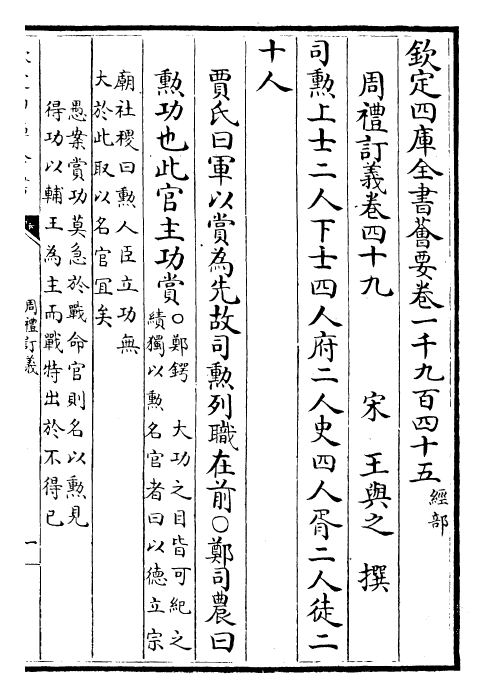 欽定四庫全書薈要卷一千九百四十五 經部
周禮訂義卷四十九 宋 王與之 撰
司勲上士二人下士四人府二人史四人胥二人徒二
十人
賈氏曰軍以賞為先故司勲列職在前○鄭司農曰
勲功也此官主功賞○鄭鍔 大功之目皆可紀之
績獨以勲名官者曰以德立宗
廟社稷曰勲人臣立功無
大於此取以名官宜矣
愚案賞功莫急於戰命官則名以勲見
得功以輔王為主而戰特出於不得已
周禮訂義
一